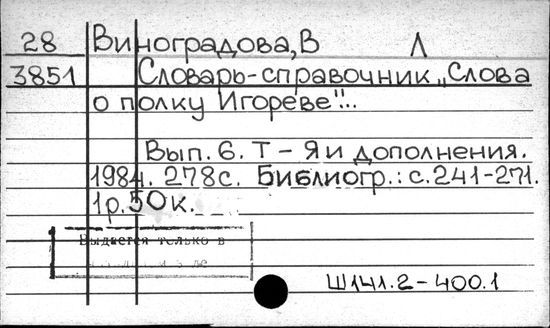 28 Виноградова, В Л
3851 Словарь-справочник „Слова
о полку Игореве"...
Вып. 6. Т - Я и дополнения.
1984. 278с. Библиогр.: с. 241-271.
1р. 50 к.
Выдается только в
Ш141.2-400.1